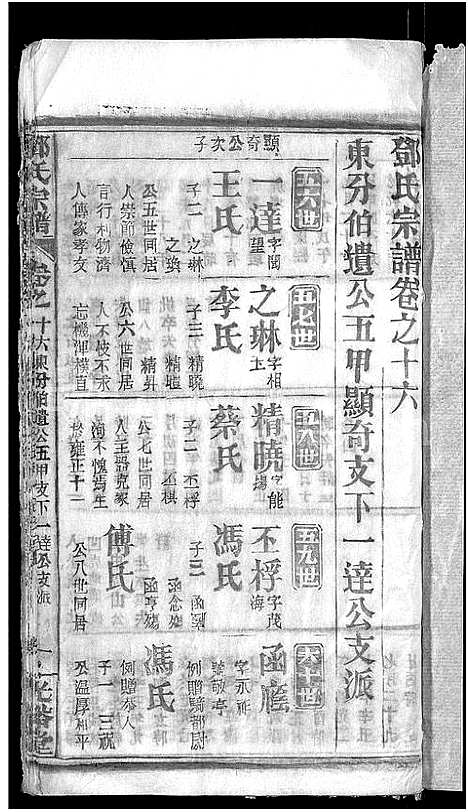 鄧氏宗譜卷之十六
東分伯遺公五甲顯奇支下一達公支派
顯奇公次子
五六世
一達
字聞
望
王氏
子二 之琳
之璵
公五世同居
人崇節儉慎
言行利物濟
人傳家孝友
五七世
之琳
字相
玉
李氏
子三 精曉
精暄 精昇
公六世同居
人不忮不求
忘機渾樸直
五八世
精曉
字能
揚
蔡氏
子二 丕桴
丕棋
公七世同居
人主器克家
洵不愧為生
於雍正十二
五九世
丕桴
字茂
海
馮氏
子三
函念殤
函亨殤
傅氏
公八世同居
六十世
函
字永
例贈騎都尉
馮氏
例贈恭人
子一 三祝
公溫厚和平
鄧氏宗譜
卷之十六東分伯遺公五甲支下一達公支派